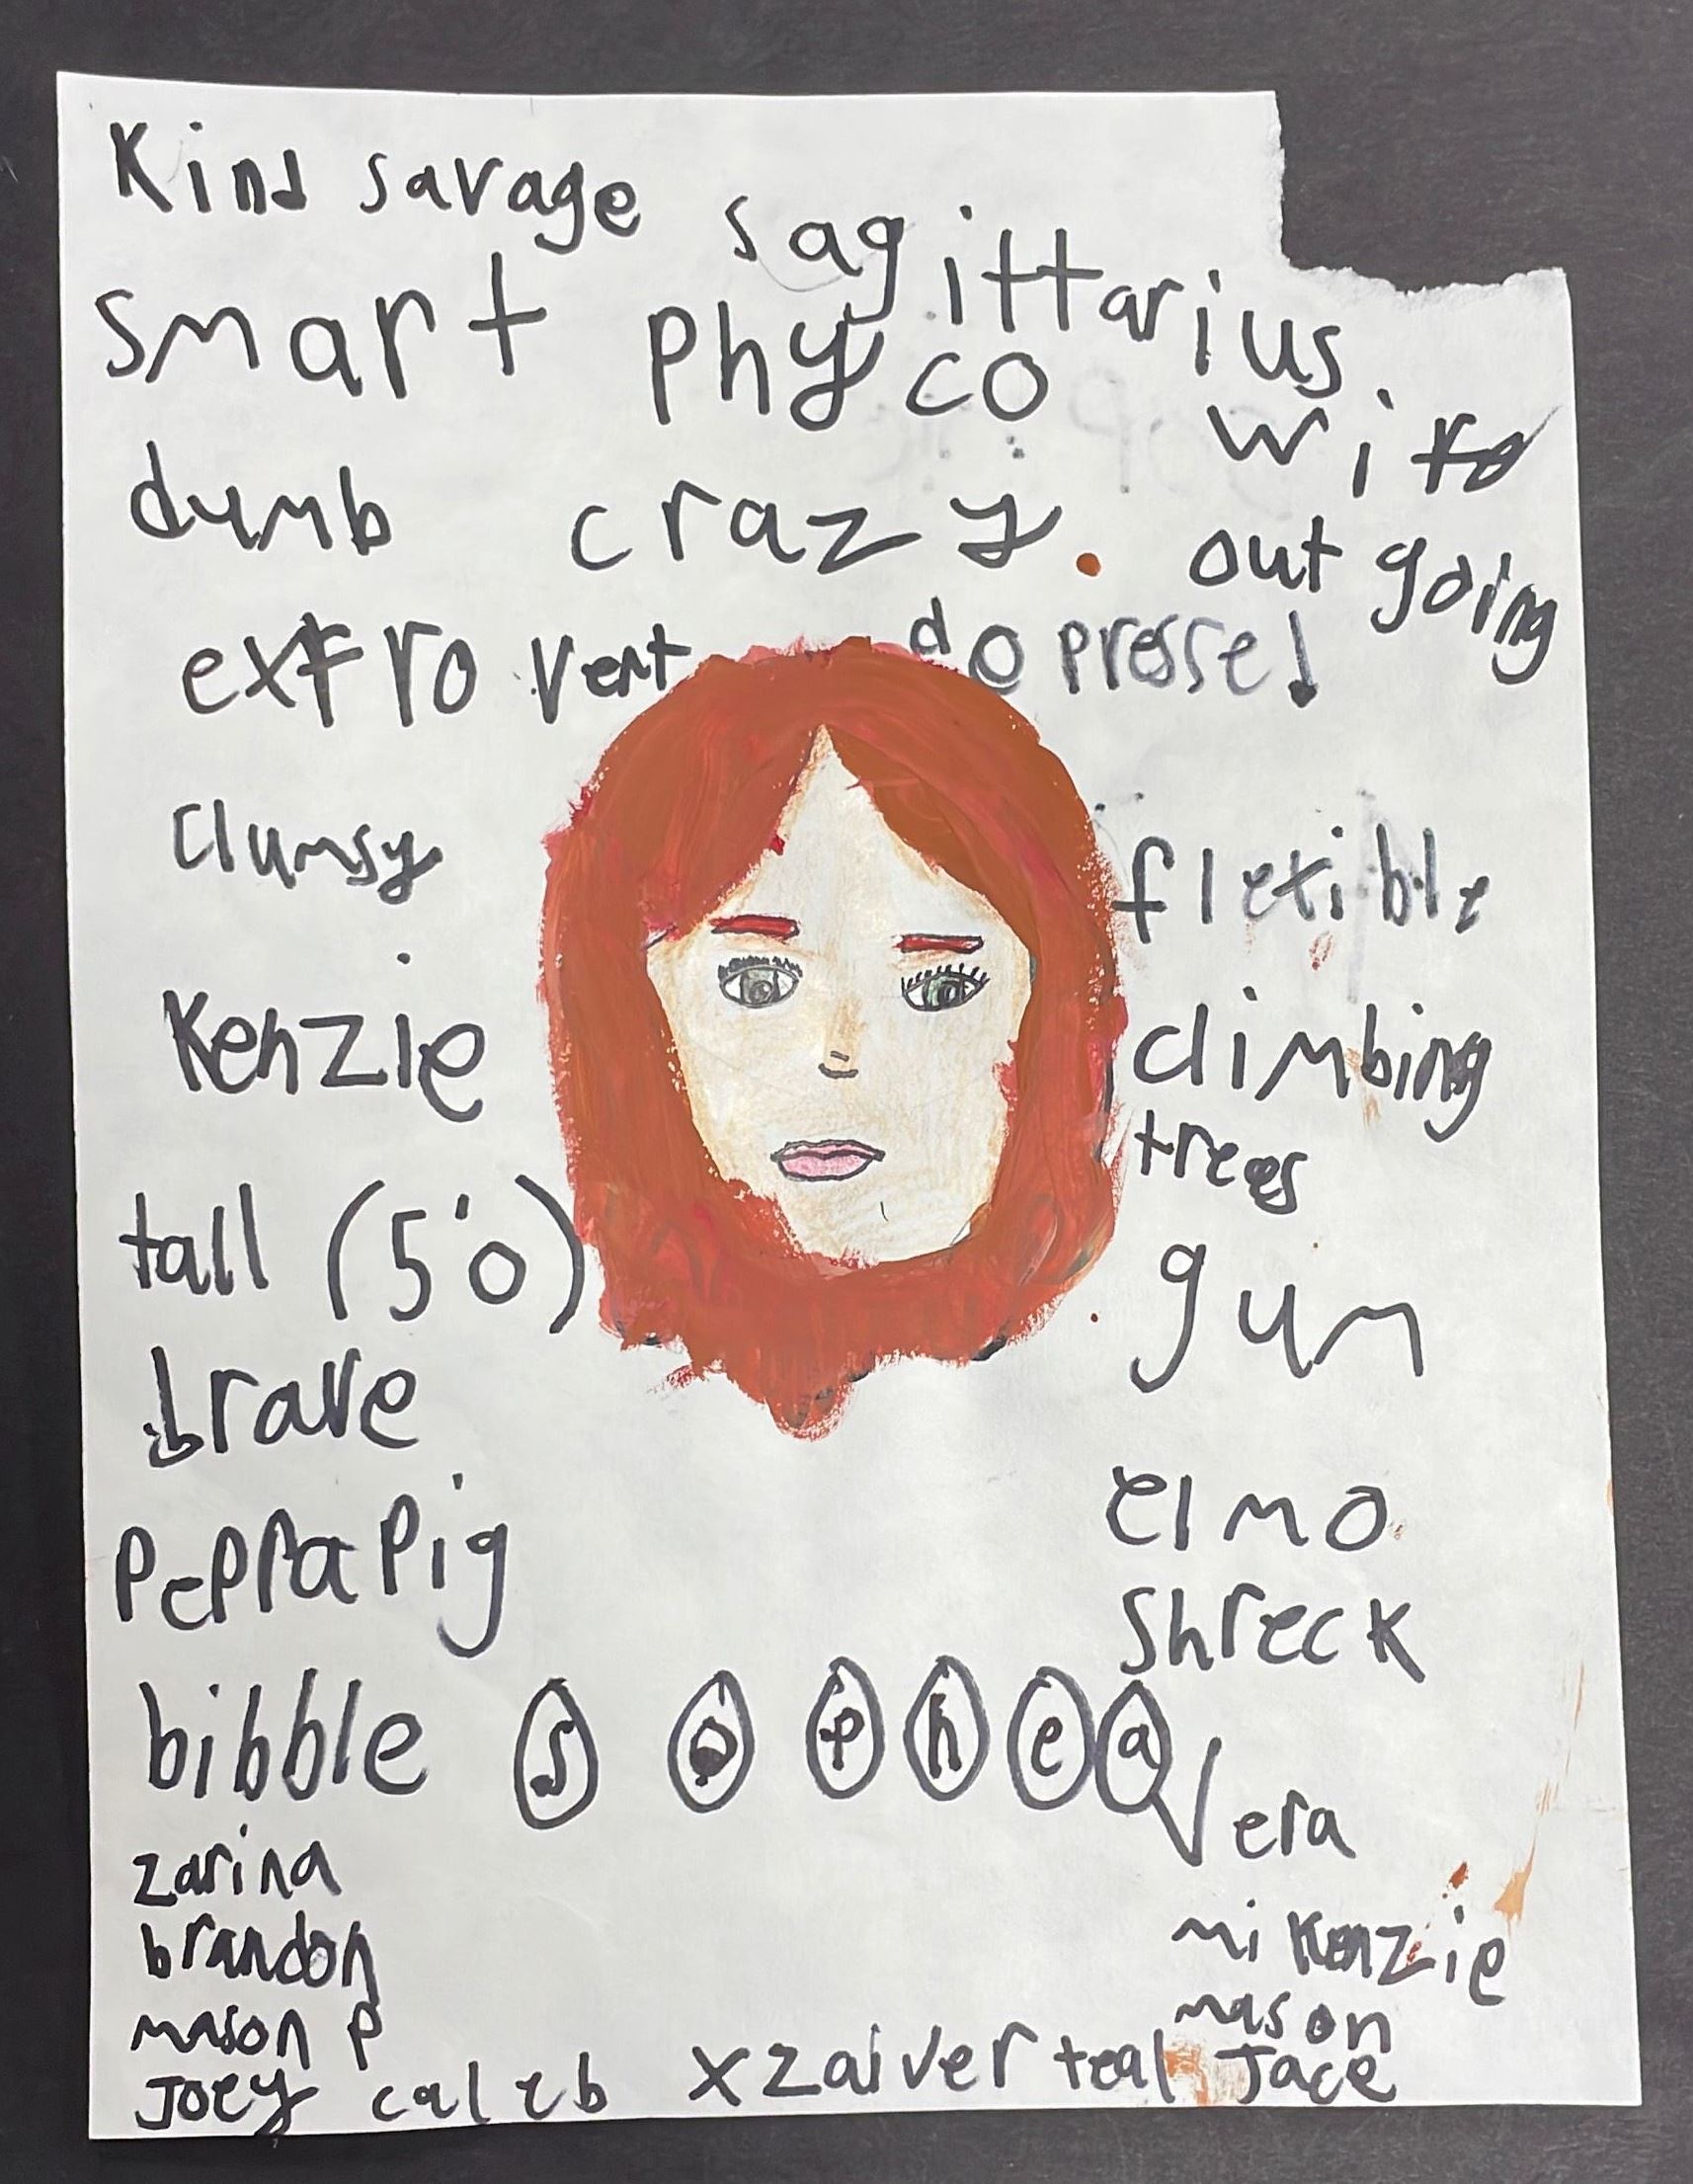 Kind savage sagittarius.
smart phyco
dumb crazy. out going
extrovert
clumsy flexible
Kenzie climbing
trees
tall (5'0) gum
brave
Peppa Pig elmo
Shreck
bibble s o p h e a
Vera
zarina
brandon mikenzie
mason P mason
Joey caleb xzaiver teal Jace